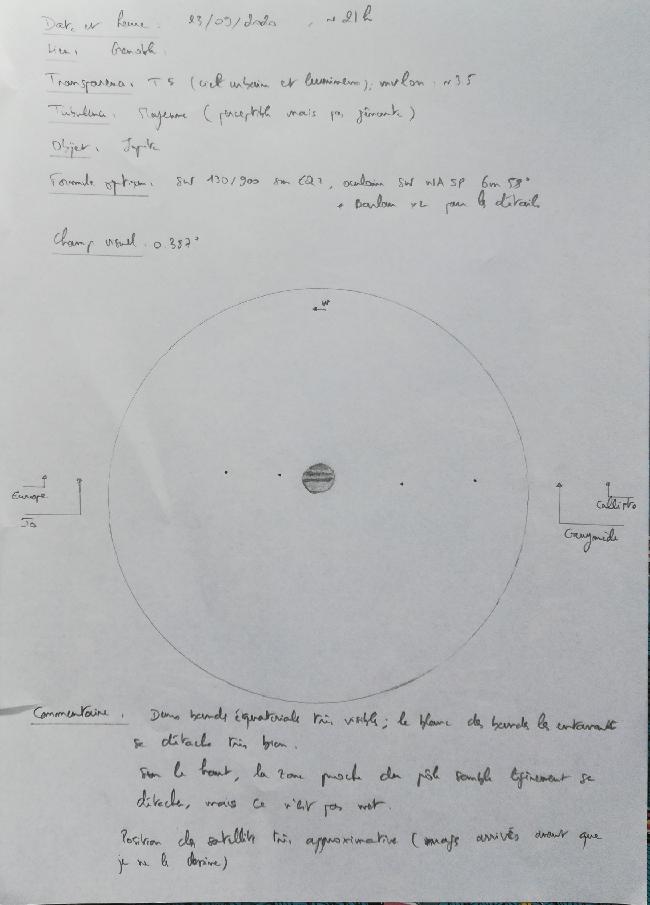 Date et heure : 23/09/2020, ~ 21h
Lieu : Grenoble
Transparence : T5 (ciel urbain et lumineux), mvlon : ~3.5
Turbulence : Moyenne (perceptible mais pas gênante)
Objet : Jupiter
Formule optique : SW 130/900 sur EQ2, oculaire SW WA SP 6mm 58°
+ Barlow x2 pour les détails
Champ visuel : 0.387°
W
Europe
Io
Callisto
Ganymède
Commentaire : Deux bandes équatoriales très visibles ; le blanc des bandes les entourant
se détache très bien.
Sur le haut, la zone proche du pôle semble légèrement se
détacher, mais ce n'est pas net.
Position des satellites très approximative (nuages arrivés avant que
je ne les dessine)